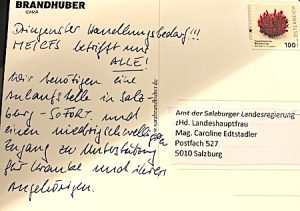 BRANDHUBER
Dringender Handlungsbedarf!!!
ME/CFS betrifft uns
ALLE!
Wir benötigen eine
Anlaufstelle in Salz-
burg - SOFORT, und
einen niedrigschwelligen
Zugang zu Unterstützung
für Kranke und ihre
Angehörigen.
ÖSTERREICH
100
Amt der Salzburger Landesregierung
zHd. Landeshauptfrau
Mag. Caroline Edtstadler
Postfach 527
5010 Salzburg